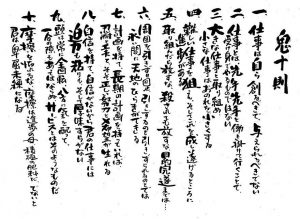 鬼十則
一 仕事は自ら創るべきで 与えられるべきでない
二 仕事とは先手先手と働き掛けて行くことで
受身でやるものではない
三 大きな仕事と取り組め
小さな仕事はおのれを小さくする
四 難しい仕事を狙え そしてこれを成し遂げるところに
進歩がある
五 取り組んだら放すな 殺されても放すな 目的完遂までは…
六 周囲を引きずり回せ 引きずるのと引きずられるのとでは
永い間に天地のひらきができる
七 計画を持て 長期の計画を持っていれば
忍耐と工夫と そして正しい努力と希望が生れる
八 自信を持て 自信がないから君の仕事には
迫力も粘りも そして厚味すらがない
九 頭は常に全回転 八方に気を配って
一分の隙もあってはならぬ サービスとはそのようなものだ
十 摩擦を怖れるな 摩擦は進歩の母 積極の肥料だ でないと
君は卑屈未練になる